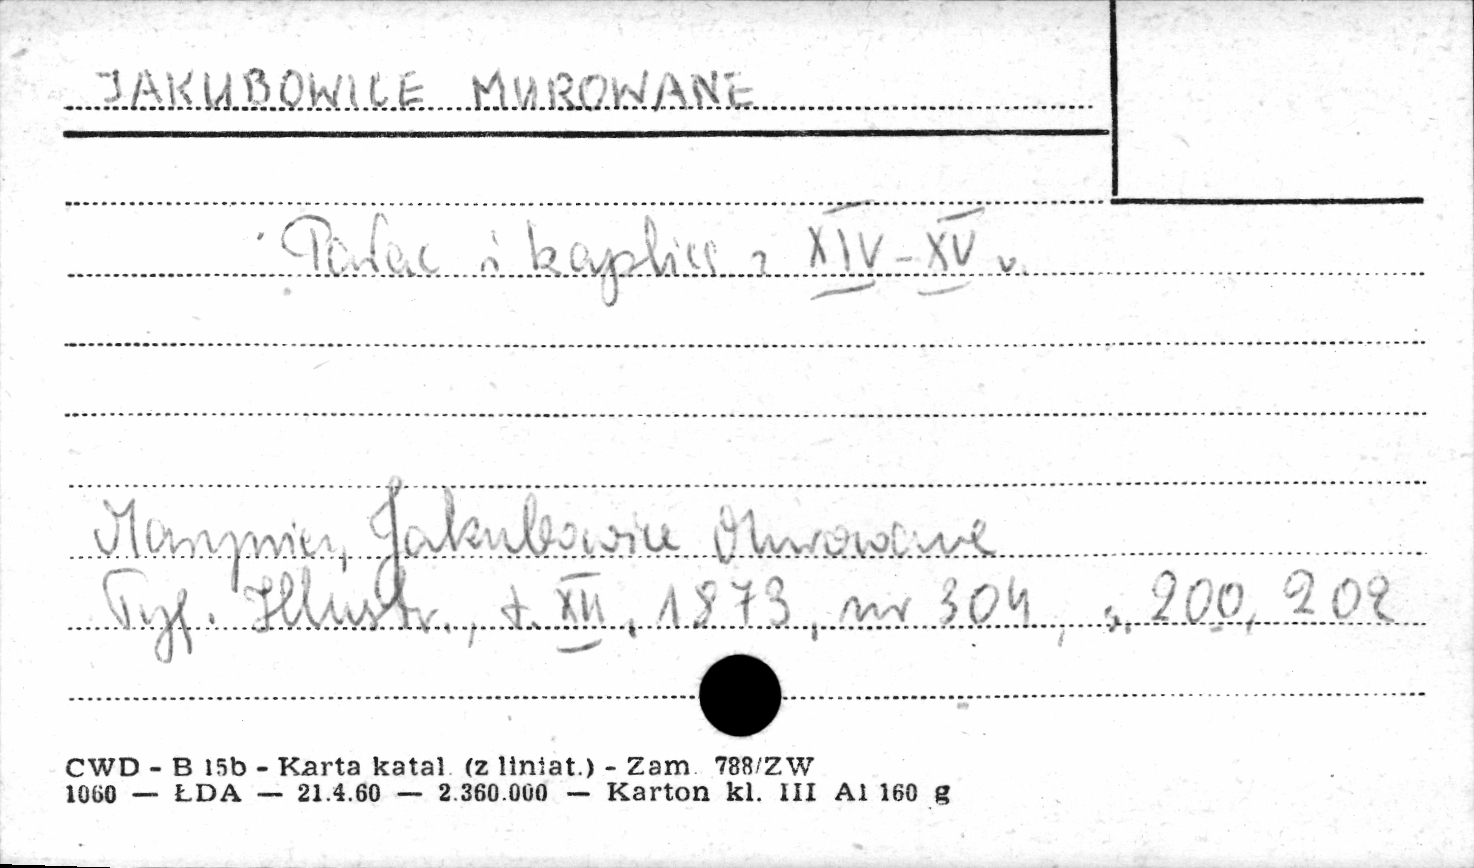 JAKUBOWICE MUROWANE
Pałac i kaplica z XIV-XV w.
Jakubowice Murowane
Tyg. Illustr., t. XII, 1873, nr 304, s. 200, 202
CWD - B 15b - Karta katal. (z liniat.) - Zam. 788/ZW
1060 — ŁDA — 21.4.60 — 2.360.000 — Karton kl. III A1 160 g